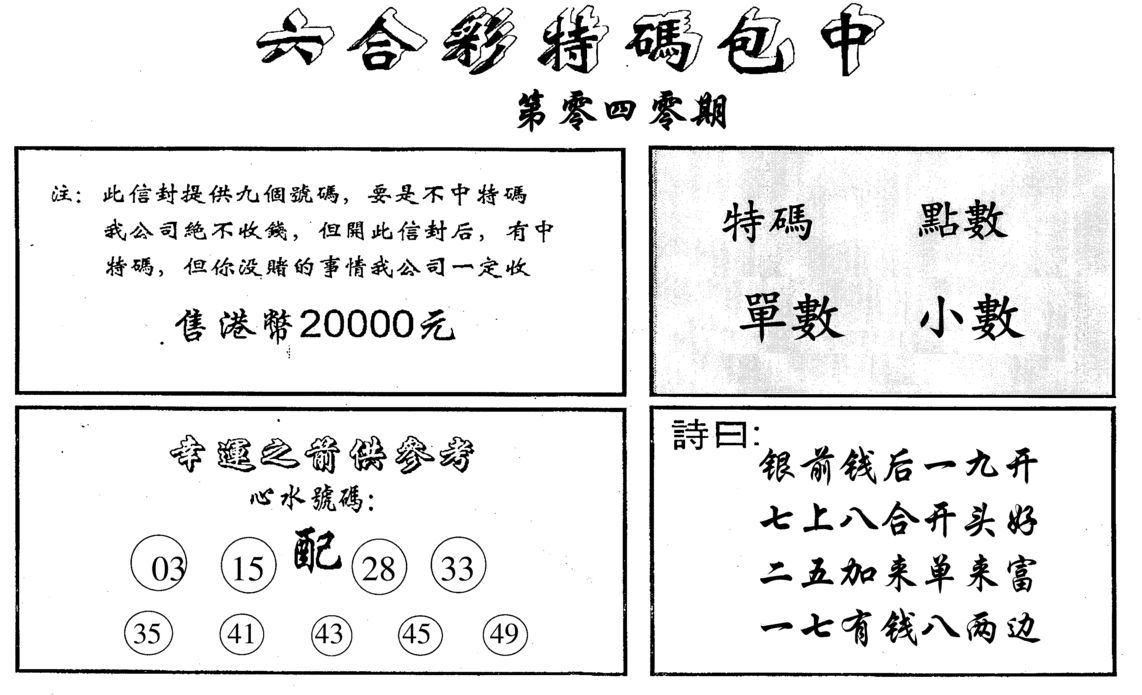 六合彩特碼包中
第零四零期
注：此信封提供九個號碼，要是不中特碼
我公司絶不收錢，但開此信封后，有中
特碼，但你没賭的事情我公司一定收
售港幣20000元
特碼 點數
單數 小數
幸運之箭供參考
心水號碼：
03 15 配 28 33
35 41 43 45 49
詩曰：
银前钱后一九开
七上八合开头好
二五加来单来富
一七有钱八两边